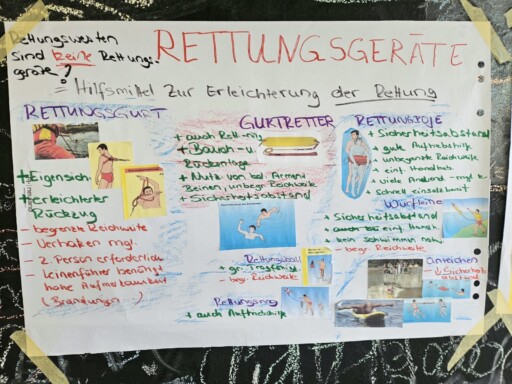 Rettungswesten
sind keine Rettungs-
geräte!
RETTUNGSGERÄTE
= Hilfsmittel zur Erleichterung der Rettung
RETTUNGSGURT
+ Eigensich.
+ erleichterter
Rückzug
- begrenzte Reichweite
- Verhaken mgl.
- 2. Person erforderlich
- Leinenführer benötigt
hohe Aufmerksamkeit
(Brandung)
GURTRETTER
+ auch Rett-ring
+ Bauch- u.
Rückenlage
+ Nutz von bei Armen
Beinen, unbegr Reichweite
+ Sicherheitsabstand
RETTUNGSBOJE
+ Sicherheitsabstand
+ gute Auftriebshilfe
+ unbegrenzte Reichweite
+ einf. Handhab
+ viele Anwend-mgl.
+ schnell einsatzbereit
Wurfleine
+ Sicherheitsabstand
+ einf. Handh.
+ kein Schwimmen notw.
- begr. Reichweite
Rettungsball
+ gr. Tragfähigk.
- begr. Reichweite
Rettungsring
+ auch Auftriebshilfe
anreichen
- Sicherheits
abstand